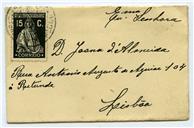 15 C.
CORREIO
Exma
Senhora
D. Joana d'Almeida
Rua Antonio Augusto de Aguiar 104
á Rotunda
Lisboa